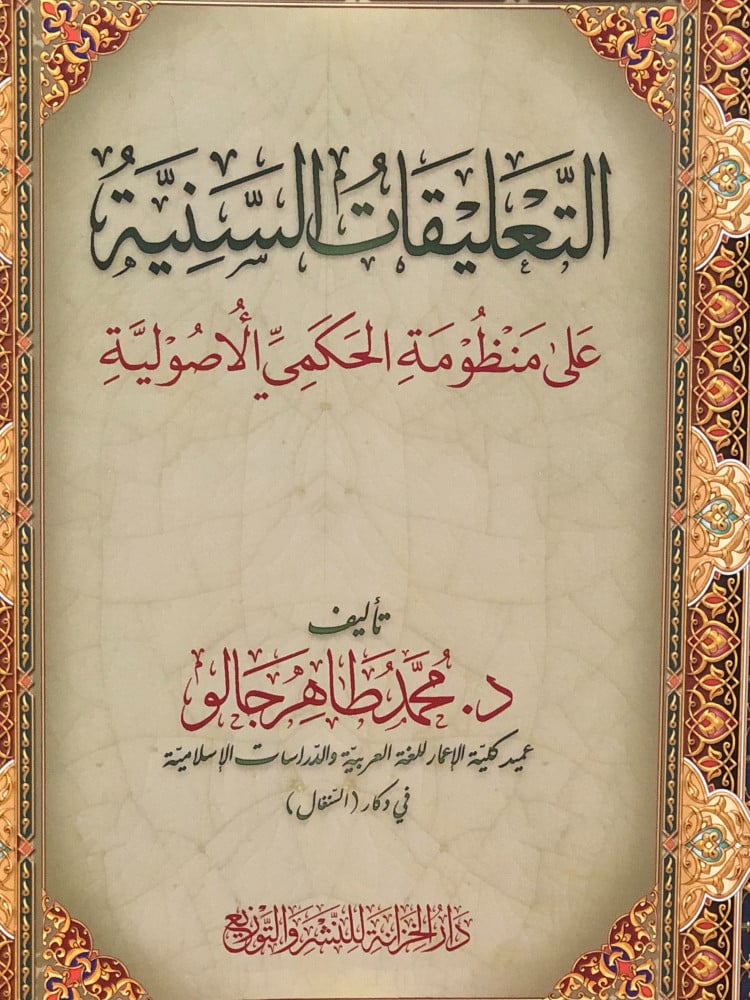 التَّعْلِيْقَاتُ السَّنِيَّةُ
عَلَى مَنْظُوْمَةِ الحَكَمِيِّ الْأُصُوْلِيَّةِ
تأليف
د. مُحَمَّدُ طَاهِرُ جَالُو
عميد كليّة الإعمار للغة العربيّة والدّراسات الإسلاميّة
في دكار (السّنغال)
دَارُ الخِزَانَةِ لِلنَّشْرِ وَالتَّوْزِيْعِ